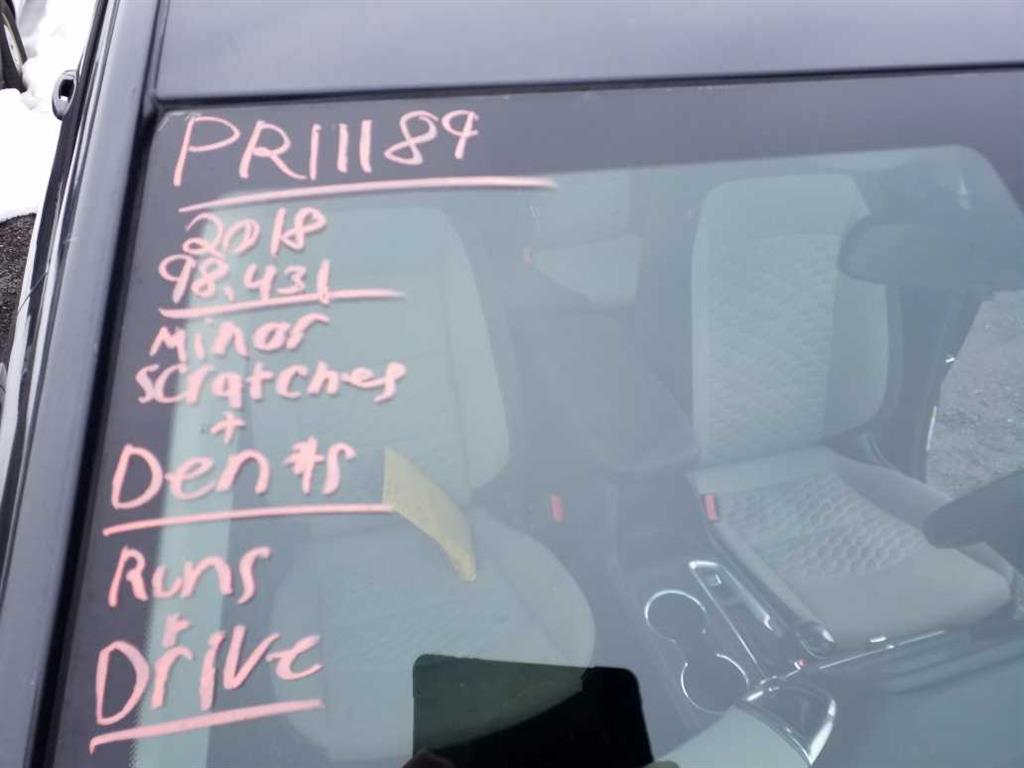 PR11189
2018
98,431
Minor
scratches
+
Dents
Runs
+
Drive